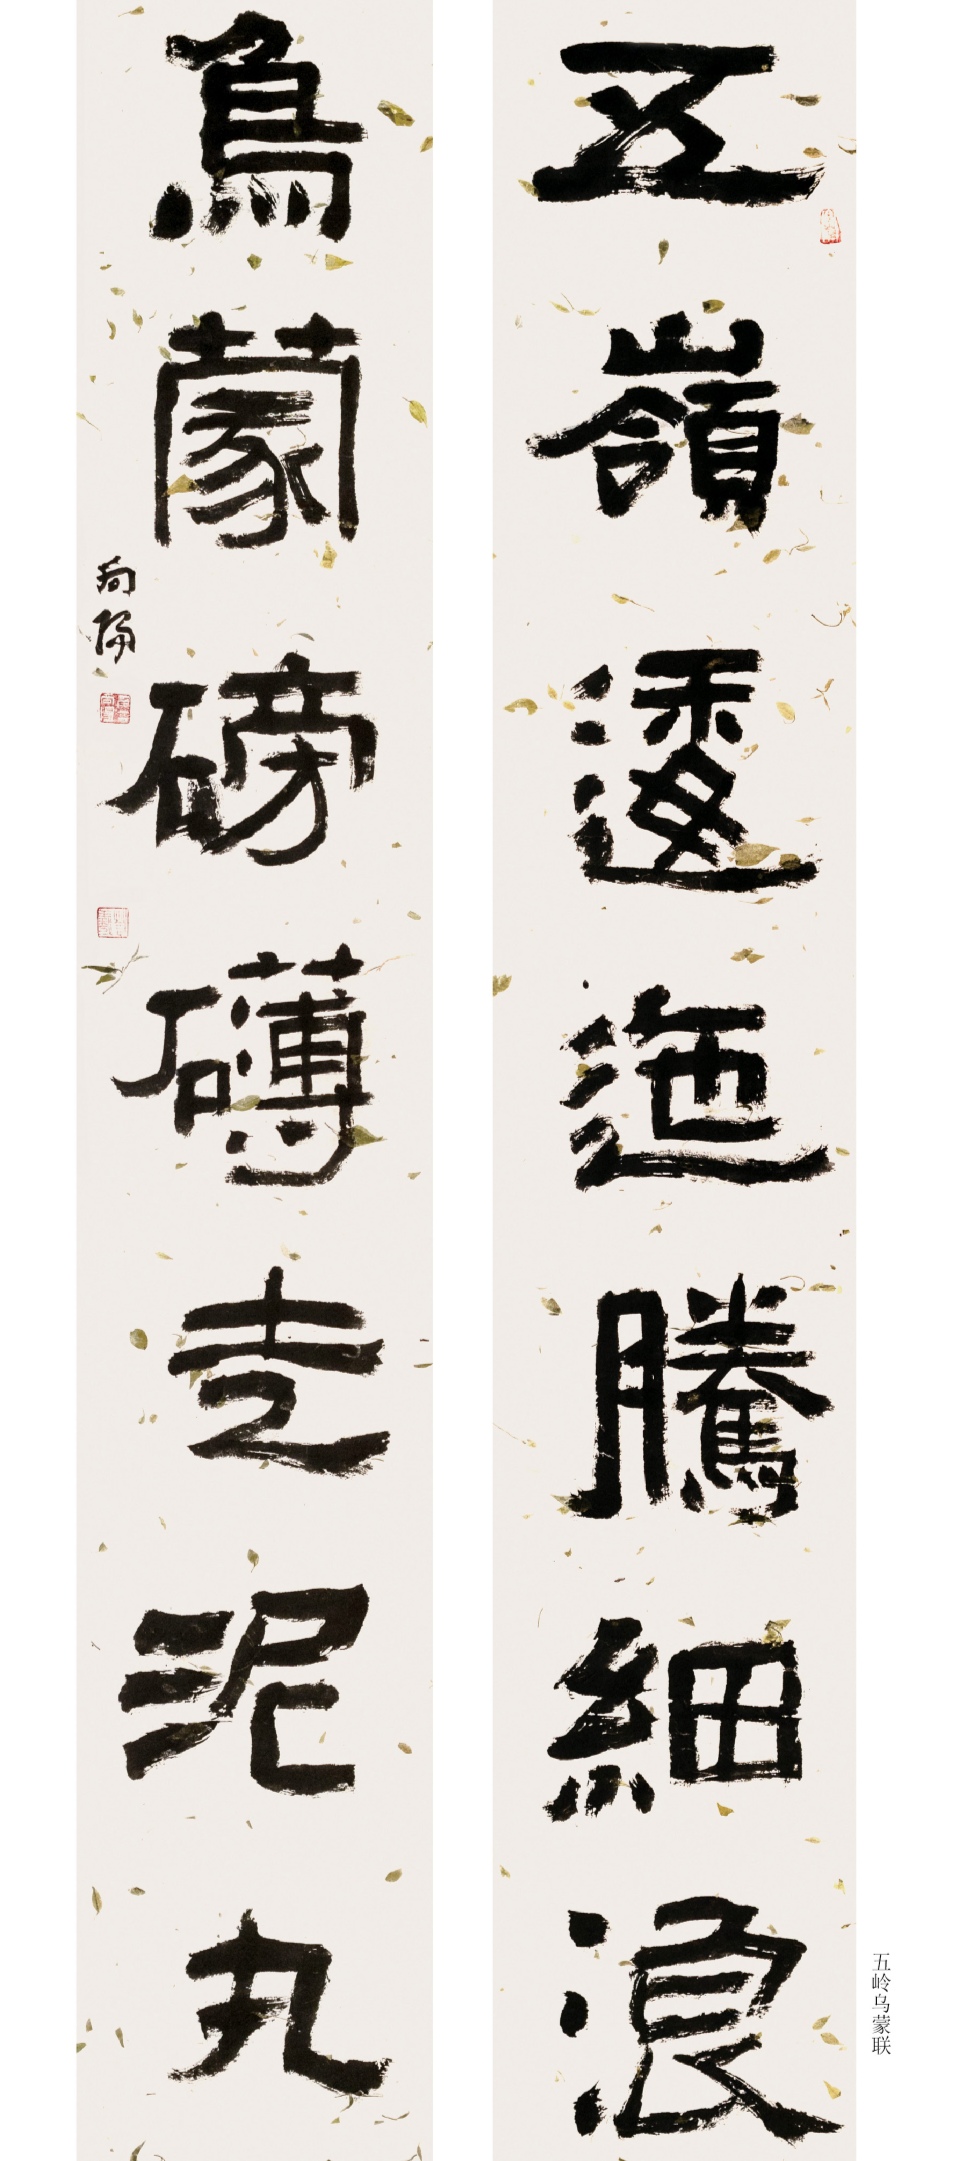 五嶺逶迤騰細浪
烏蒙磅礴走泥丸
向陽
五岭乌蒙联